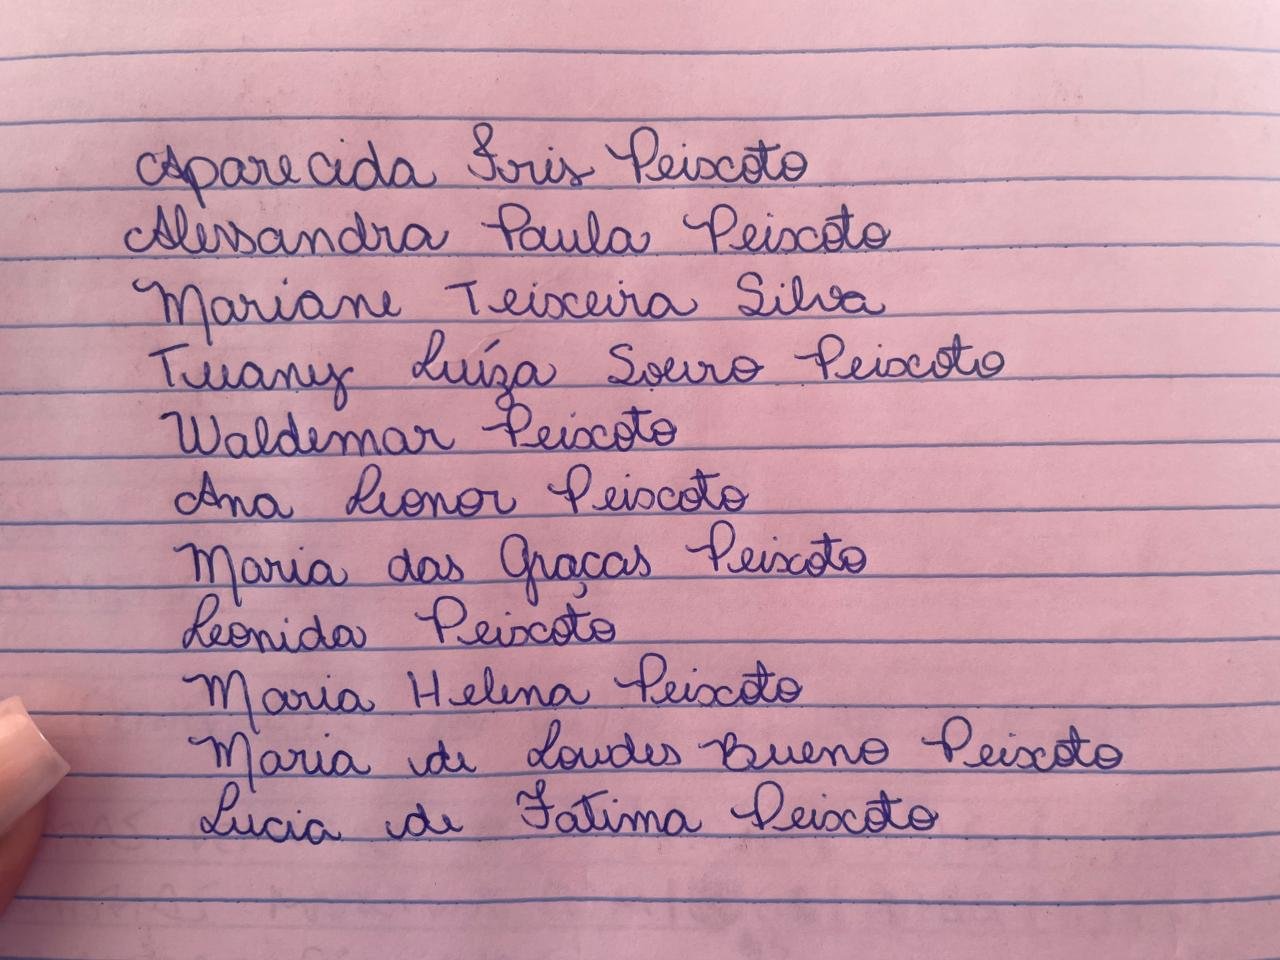 Aparecida Iris Peixoto
Alessandra Paula Peixoto
Mariane Teixeira Silva
Tuany Luíza Soeiro Peixoto
Waldemar Peixoto
Ana Leonor Peixoto
Maria das Graças Peixoto
Leonida Peixoto
Maria Helena Peixoto
Maria de Loudes Bueno Peixoto
Lucia de Fatima Peixoto